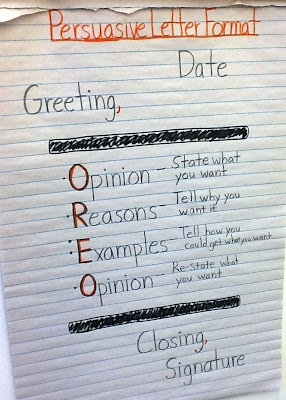 Persuasive Letter Format
Date
Greeting,
·Opinion - State what
you want
·Reasons - Tell why you
want it
·Examples - Tell how you
could get what you want
·Opinion - Re-state what
you want
Closing,
Signature